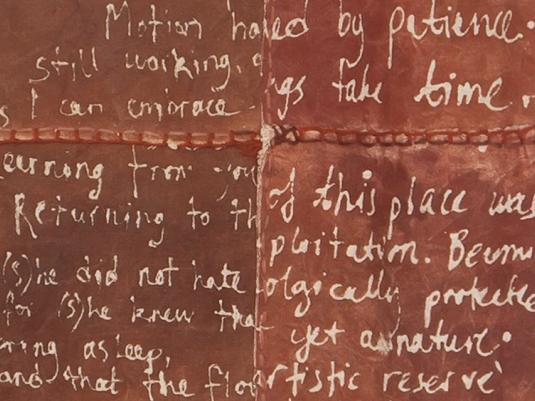 Motion ha ed by patience.
still working, gs take time.
s I can embrace
earning from you of this place was
Returning to th ploitation. Becom
(s)he did not hate ologically protecte
for (s)he knew tha yet a nature.
ring asleep,
and that the flo rtistic reserve